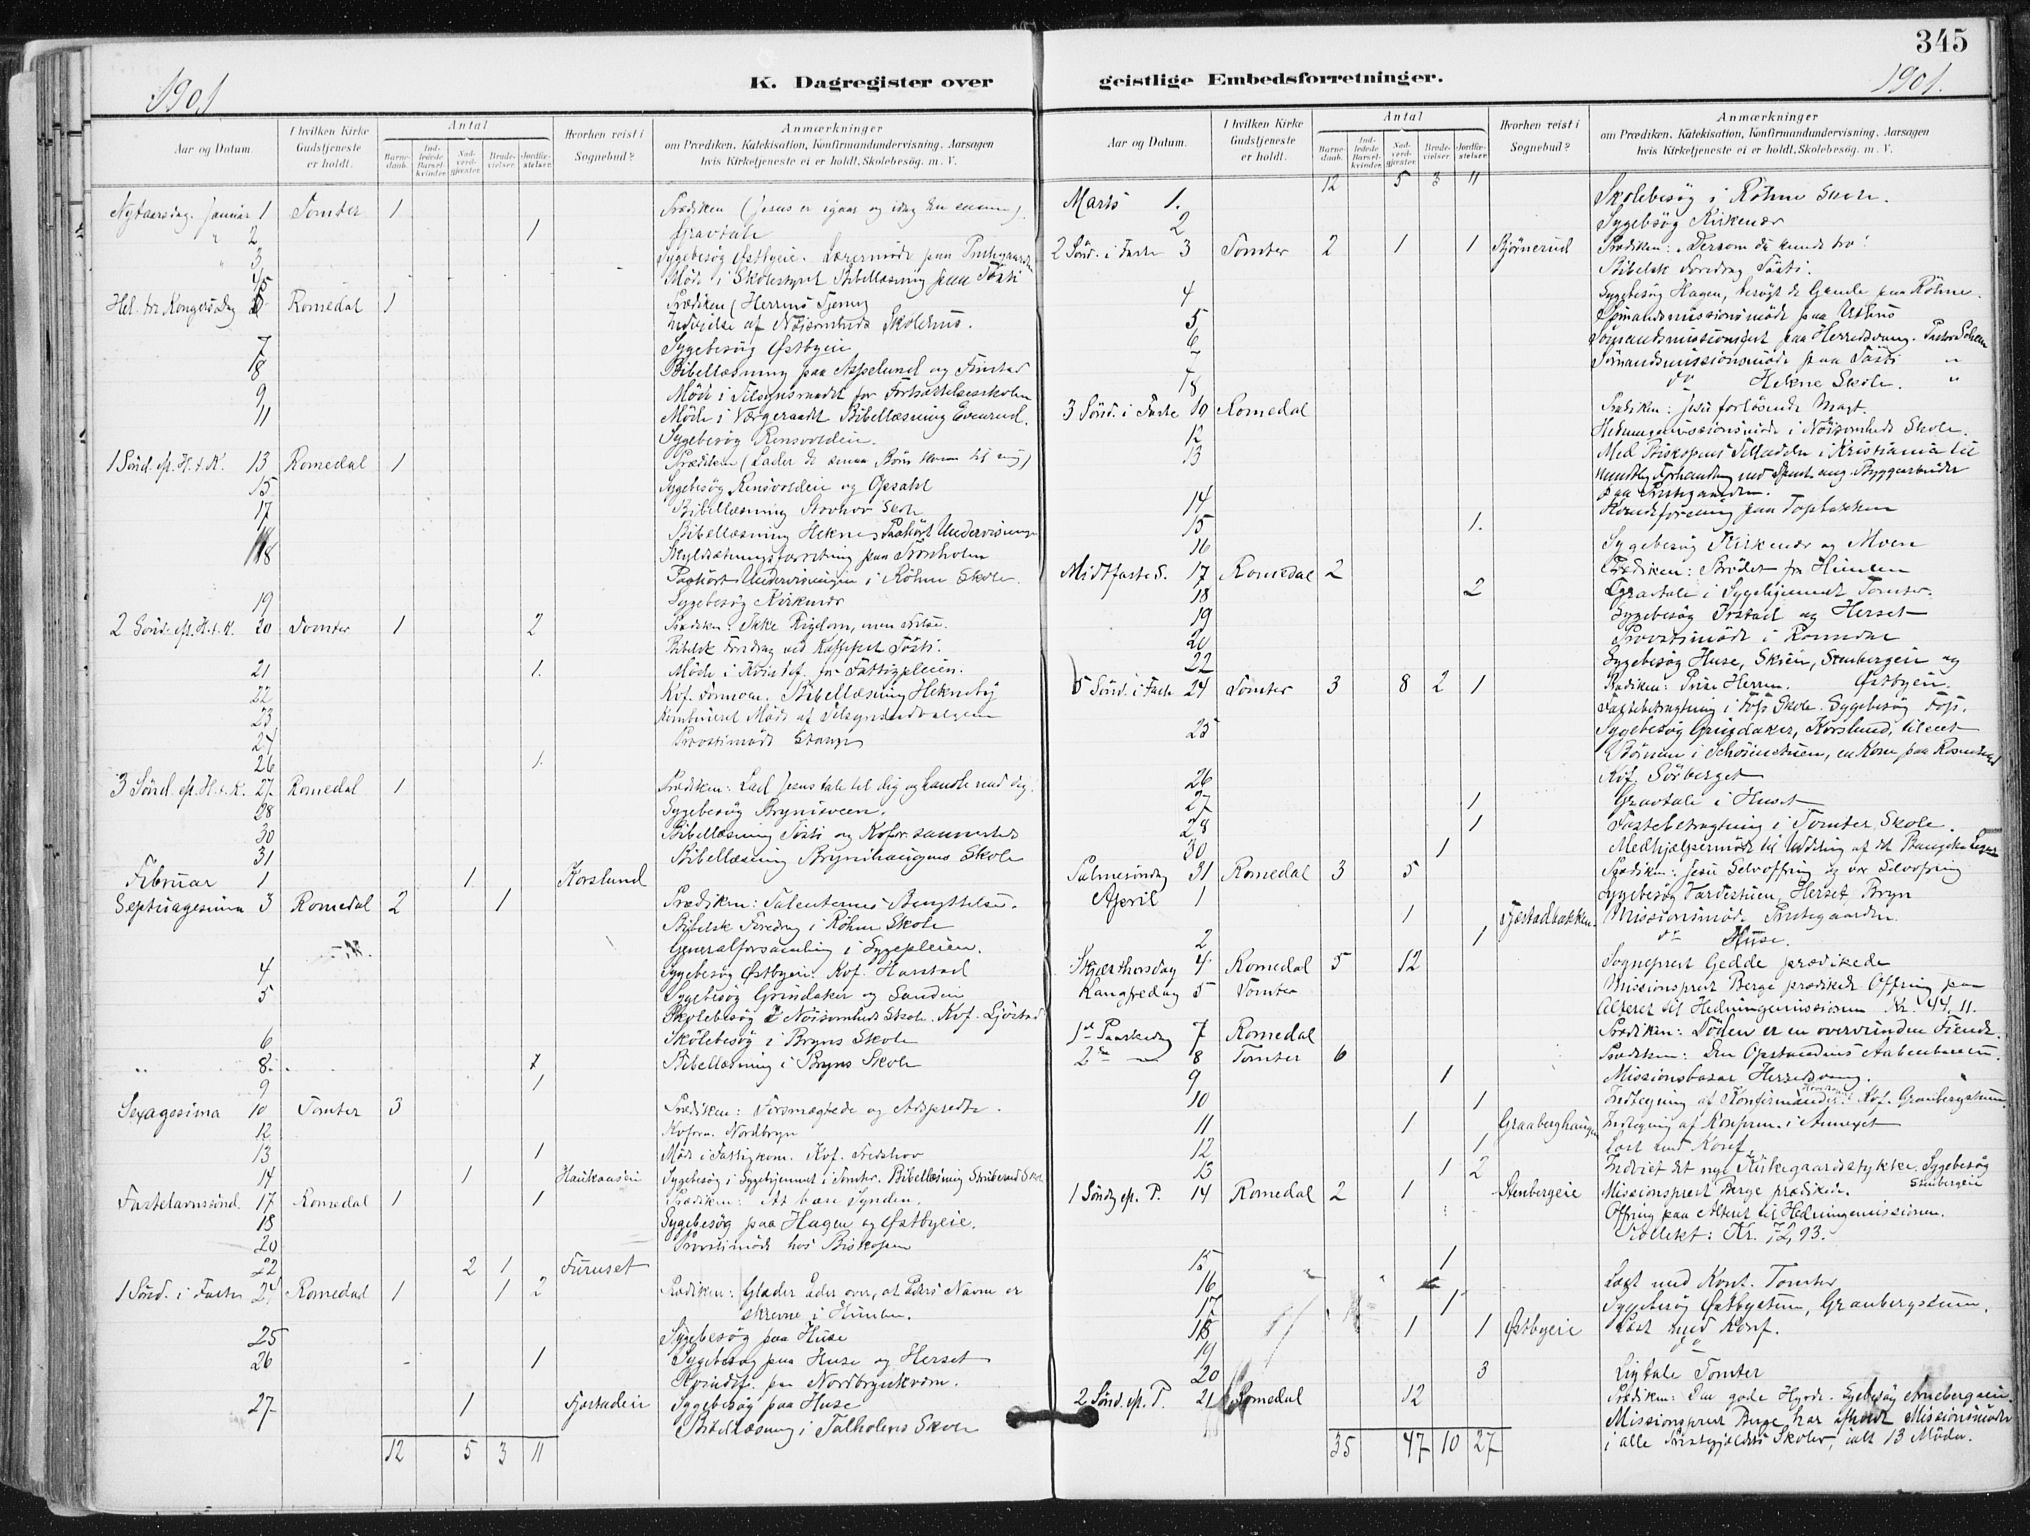 345
K. Dagregister over geistlige Embedsforretninger.
1901
1901.
Aar og Datum
I hvilken Kirke Gudstjeneste er holdt.
Antal
Barne-daab.
Ind-ledede Barsel-kvinder.
Nad-verd-gjæster.
Brude-vielser.
Jordfæ-stelser.
Hvorhen reist i Sognebud?
Anmærkninger
om Prædiken, Katekisation, Konfirmandundervisning, Aarsagen
hvis Kirketjeneste ei er holdt, Skolebesøg. m. V.
Nytaarsdag. Januar 1 Tomter 1 Prædiken (Jesus er igaar og idag den samme).
" 2 1 Gravtale
" 3 Sygebesøg Østbyeie. Lærermøde paa Prestegaarden
4/5 Møde i Skolestyret Bibellæsning paa Tosti
Hel. tre Kongers Dag 6 Romedal 1 Prædiken (Herrens Tjener)
Indvielse af Nøisomheds Skolehus.
7 Sygebesøg Østbyeie
8 Bibellæsning paa Asp­elund og Finstad
9 Møde i Tilsynsraadet for Fortsættelsesskolen
11 Møde i Værgeraadet Bibellæsning Evenrud.
Sygebesøg Rensvoldeie.
1 Sönd. ef. H. t. K. 13 Romedal 1 Prædiken (Lader de smaa Børn komme til mig)
15 Sygebesøg Rensvoldeie og Opsahl
17 Bibellæsning Stovhov Skole
18 Bibellæsning Heknes Paahørt Undervisningen
Skyldsætningsforretning paa
Paahørt Undervisningen i Röhne Skole.
19 Sygebesøg Kirkenær
2 Sönd. ef. H. t. K. 20 Tomter 1 2 Prædiken: Ikke Rigdom, men Frelse.
Bibelsk Foredrag ved Kaffefest Tosti.
21 1. Møde i Kvindef. for Fattigpleien.
22 Kvf. Bibellæsning Hekneby
23 Kombineret Møde af Tilsynsudvalgene
24 Provstimøde Stange
26 1.
3 Sönd. ef. H. t. K. 27 Romedal 1 Prædiken: Lad Jesus tale til dig og handle med dig.
28 Sygebesøg Brynisveen.
30 Bibellæsning Tosti og Kvfor. sammesteds
31 Bibellæsning Brynihaugens Skole
Februar 1 1 Korslund
Septuagesima 3 Romedal 2 1 Prædiken: Talenternes Benyttelse.
Bibelsk Foredrag i Röhne Skole
Generalforsamling i Sygepleien.
4 Sygebesøg Østbyeie. Kvf. Harstad
5 Sygebesøg Grindaker og Sandeie
Skolebesøg i Nøisomheds Skole. Kvf. Ljöstad
6 Skolebesøg i Bryns Skole
" 8. 1 Bibellæsning i Bryns Skole
9 1
Sexagesima 10 Tomter 3 Prædiken: Forsmægtede og Adspredte.
12 Kvform. Nordbryn
13 1 Møde i Fattigkom. Kvf. Fredshov
14 1 Haukaaseie Sygebesøg i Sygehjemmet i Tomter. Bibellæsning Stenberud Skole
Fastelavnssönd. 17 Romedal 1 1 Prædiken: At bære Synden.
18 Sygebesøg paa Hagen og Østbyeie.
20 Provstimøde hos Biskopen
22 2 1 Furuset
1 Sönd. i Fasten 24 Romedal 1 1 2 Prædiken: Glæder Eder over, at Eders Navne er
skrevne i Himlen.
25 Sygebesøg paa Huse
26 1 Sygebesøg paa Huse og Herset
Kvindef. paa Nordbrynskvern.
27 1 Fjøstadeie Sygebesøg paa Huse
Bibellæsning i Talholens Skole
12 5 3 11
Aar og Datum.
I hvilken Kirke Gudstjeneste er holdt.
Antal
Barne-daab.
Ind-ledede Barsel-kvinder.
Nad-verd-gjæster.
Brude-vielser.
Jordfæ-stelser.
Hvorhen reist i Sognebud?
Anmærkninger
om Prædiken, Katekisation, Konfirmandundervisning, Aarsagen
hvis Kirketjeneste ei er holdt, Skolebesøg. m. V.
12 5 3 11
Marts 1. Skolebesøg i Röhne Skole.
2 Sygebesøg Kirkenær
2 Sönd. i Faste 3 Tomter 2 1 1 Bjørnerud Prædiken: Dersom du kunde tro!
Bibelsk Foredrag Tosti.
4 Sygebesøg Hagen, besøgt de Gamle paa Röhne.
5 Sømandsmissionsmøde paa
6 Sømandsmissionsfest paa Herredsvang. Pastor
7 Sømandsmissionsmøde paa Tosti "
8 do Hekne Skole. "
3 Sönd. i Faste 10 Romedal Prædiken: Jesu forløsende Magt.
12 Hedningemissionsmøde i Nøisomheds Skole.
13 Med Biskopens Tilladelse i Kristiania til
mundtlig Forhandling med Dpmt. ang. Byggearbeider
paa Prestegaarden.
14 Kvindeforening paa Topbakken
15 1.
16 Sygebesøg Kirkenær og Moen
Midtfaste S. 17 Romedal 2 Prædiken: Brødet fra Himlen
18 2 Gravtale i Sygehjemmet Tomter.
19 Sygebesøg og Herset
20 Provstimøde i Romedal
22 Sygebesøg Huse, Skien, Stenbergeie og
5 Sönd. i Faste 24 Tomter 3 8 2 1 Prædiken: Prise Herren. Østbyeie.
Fastebetragtning i Fos Skole. Sygebesøg Fos.
25 Sygebesøg Grindaker, Korslund, tilseet
Børnene i en Kone paa Romedal
26 Kvf. Sörberget
27 1 Gravtale i Huset
28 1 Fastebetragtning i Tomter Skole.
30 1 Medhjælpermøde til Uddeling af det Bangske Legat
Palmesøndag 31 Romedal 3 5 Prædiken: Jesu Selvoffring og vor Selvofring
April 1 Sygebesøg Herset, Bryn
1 Fjøstadbakken. Missionsmøde Prestegaarden.
2 1 do Huse.
Skjærthorsdag 4 Romedal 5 12 Sogneprest Gedde prædikede
Langfredag 5 Tomter Missionsprest Berge prædikede Offring paa
Alteret til Hedningemissionen Kr. 44.11.
1ste Paaskedag 7 Romedal Prædiken: Døden er en overvunden Fiende.
2den — 8 Tomter 6 Prædiken: Den Opstandnes Aabenbarelse.
9 1 Missionsbasar Herredsvang.
10 1 Indtegning af Konfirmander Kvf. Granbergstuen.
11 1 Graaberghaugen Indtegning af Konfirm. i Annexet
12 1 Læst med Konf.
13 1 2 Indviet det nye Kirkegaardsstykke. Sygebesøg
Stenbergeie
1 Sönd ef. P. 14 Romedal 2 1 Stenbergeie Missionsprest Berge prædikede.
Offring paa Alteret til Hedningemissionen.
Kollekt: Kr. 72,93.
15 1
16 Læst med Konf. Tomter
17 1 Sygebesøg Østbystuen, Granbergstuen.
18 1 1 Østbyeie Læst med Konf.
19
20 3 Ligtale Tomter
2 Sönd. ef. P. 21 Romedal 12 Prædiken: Den gode Hyrde. Sygebesøg Arnebergseie.
Missionsprest Berge har afholdt Missionsmøder
i alle Prestegjeldets Skoler, ialt 13 Møder.
35 47 10 27